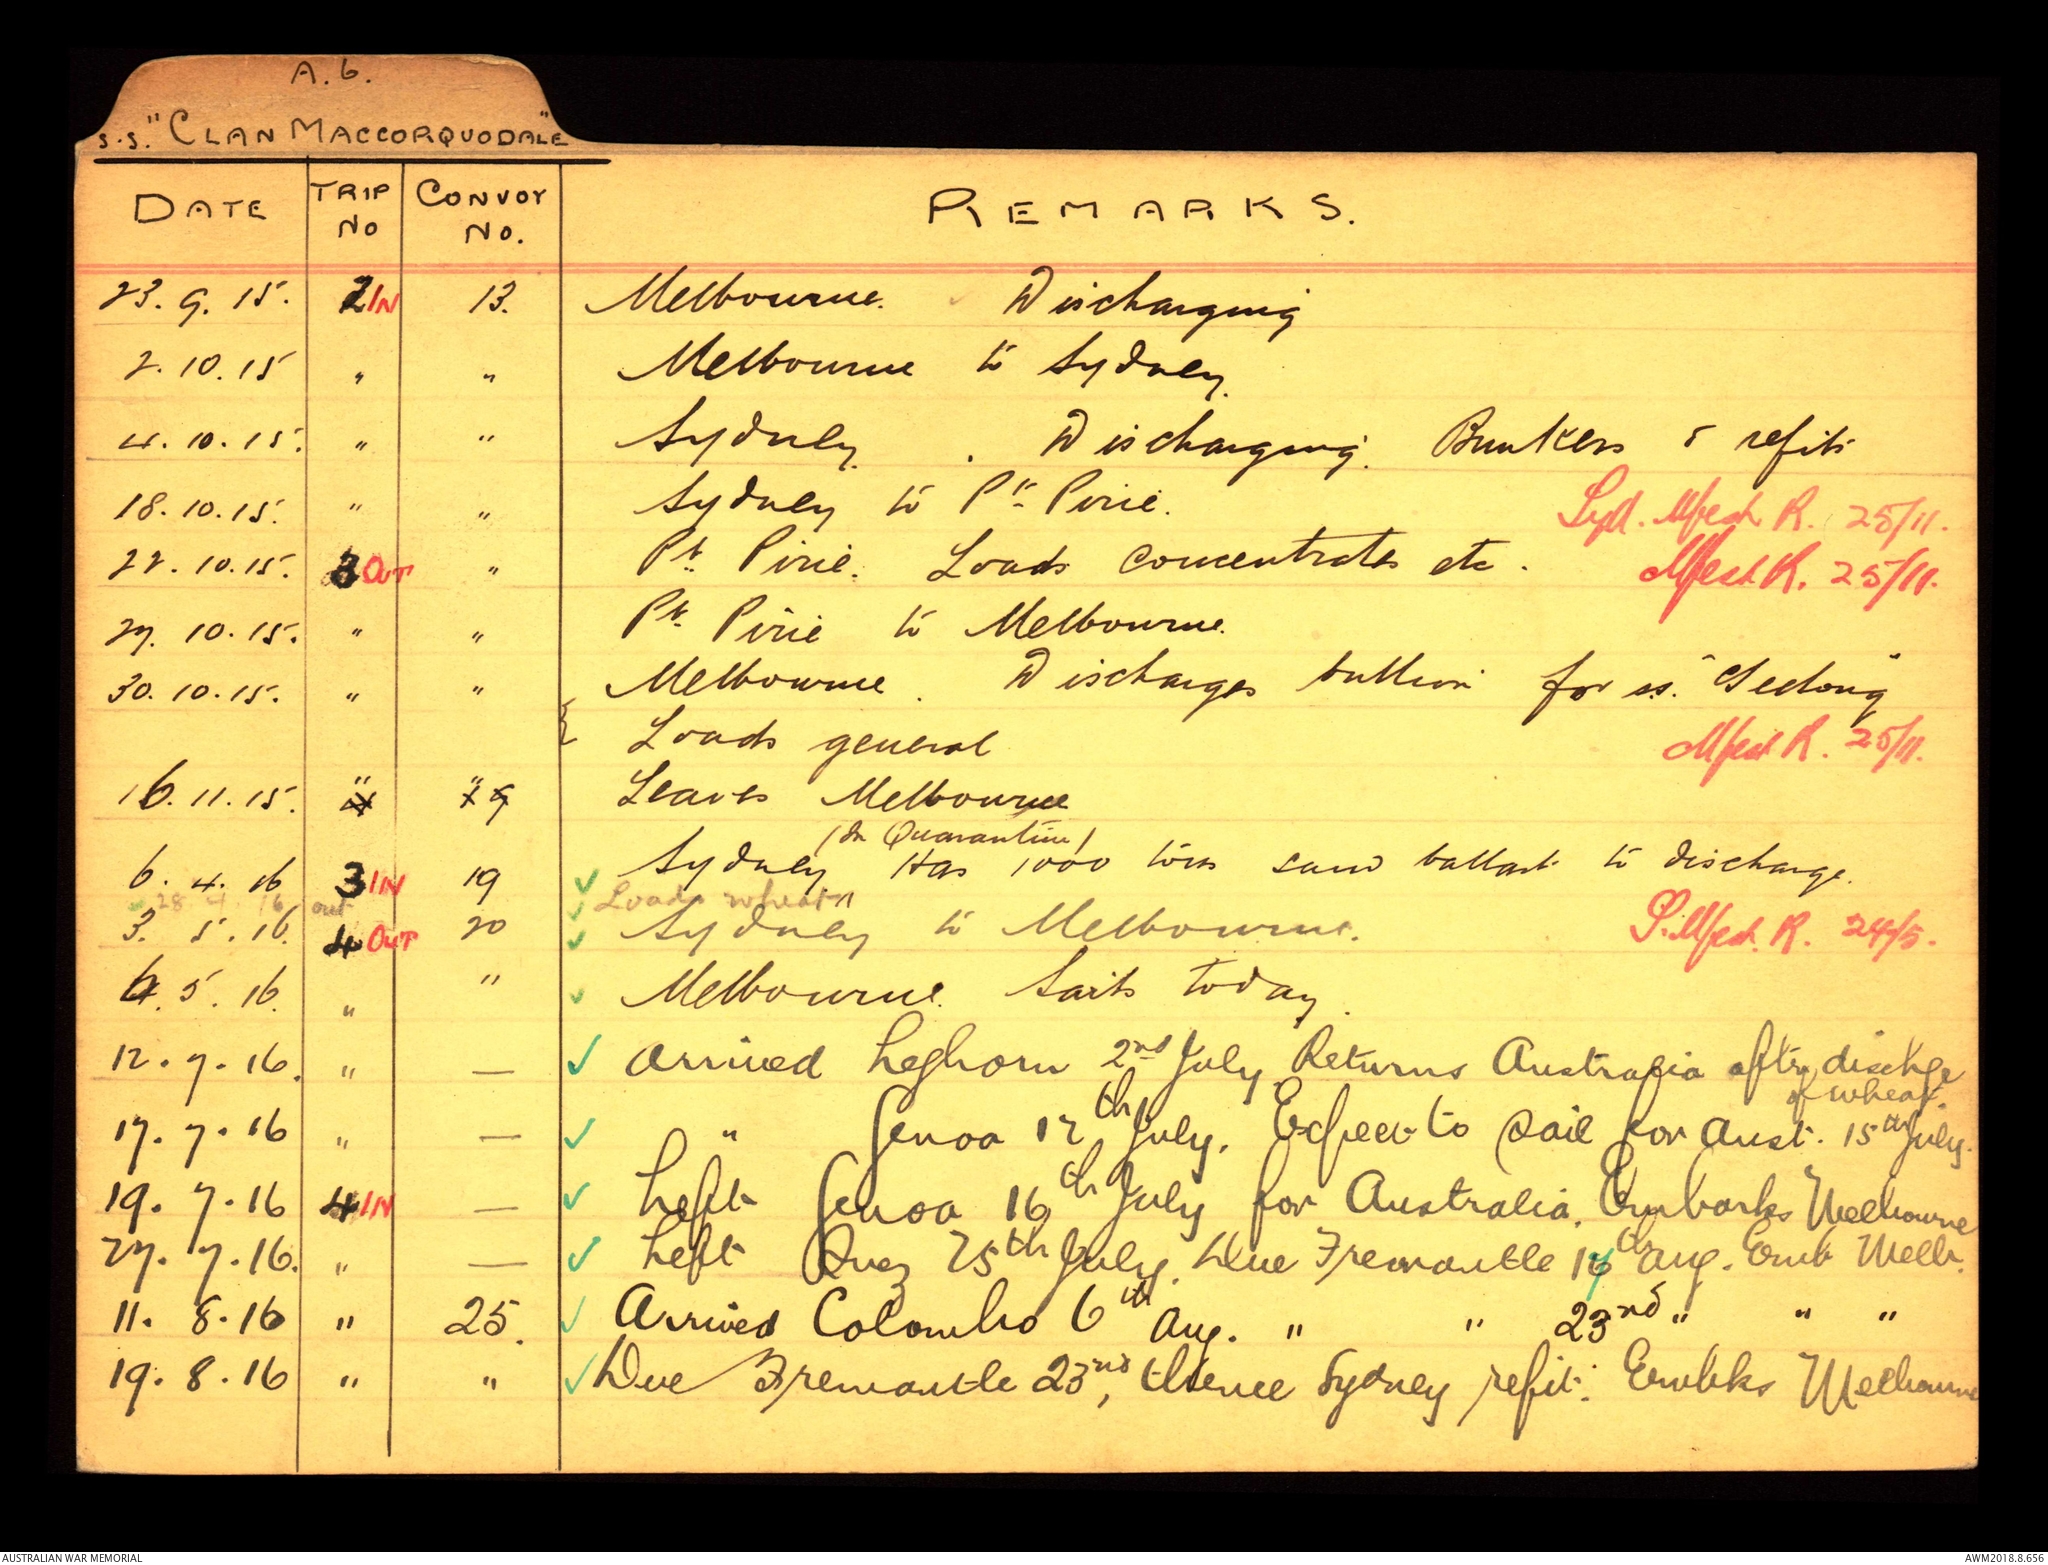 A.6.
s.s. "CLAN MACCORQUODALE"
DATE TRIP No CONVOY No. REMARKS.
23. 9. 15. 2 IN 13. Melbourne. Discharging
2. 10. 15 " " Melbourne to Sydney.
4. 10. 15. " " Sydney. Discharging. Bunkers & refits
18. 10. 15. " " Sydney to Pt Pirie. Syd. Mfest R. 25/11.
22. 10. 15. 3 OUT " Pt. Pirie. Loads concentrates etc. Mfest R. 25/11.
27. 10. 15. " " Pt. Pirie to Melbourne.
30. 10. 15. " " Melbourne. Discharges bullion for ss. "Geelong"
Loads general Mfest R. 25/11.
16. 11. 15. " " Leaves Melbourne
(In Quarantine)
6. 4. 16 3 IN 19 Sydney Has 1000 tons sand ballast to discharge.
28 4 16 out Loads wheat "
3. 5. 16. 4 OUT 20 Sydney to Melbourne. S. Mfest. R. 24/5.
6. 5. 16. " " Melbourne. Sails today.
12. 7. 16. " — Arrived Leghorn 2nd July. Returns Australia aftr dischge
of wheat.
17. 7. 16 " — " Genoa 12th July. Expect to sail for Aust. 15th July.
19. 7. 16 4 IN — Left Genoa 16th July for Australia. Embarks Melbourne
27. 7. 16. " — Left Suez 25th July. Due Fremantle 16th Aug. Emb Melb.
11. 8. 16 " 25. Arrived Colombo 6th Aug. " " 23nd " " "
19. 8. 16 " " Due Fremantle 23nd, thence Sydney refit. Embks Melbourne
AUSTRALIAN WAR MEMORIAL
AWM2018.8.656